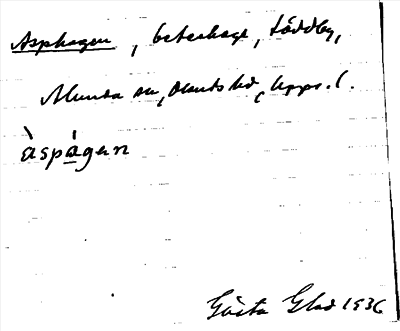 Asphagen, beteshage, Löddby,
Munsta sn, Olands hd, Upps. l.
àspágen
Gösta Glad 1936